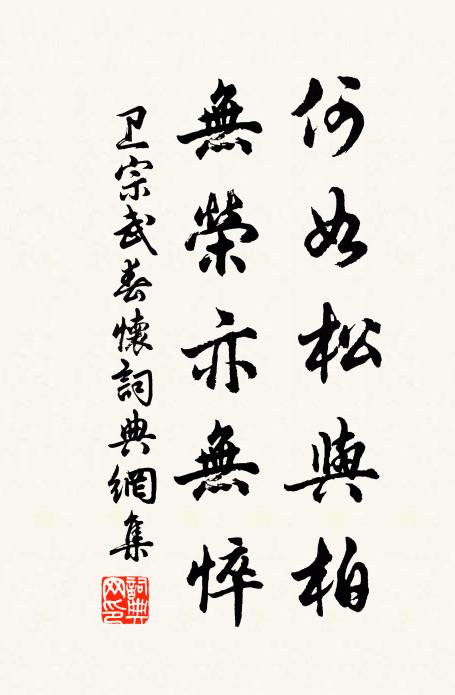 何如松與柏
無榮亦無悴
卫宗武春懷詞典網集
詞典网印